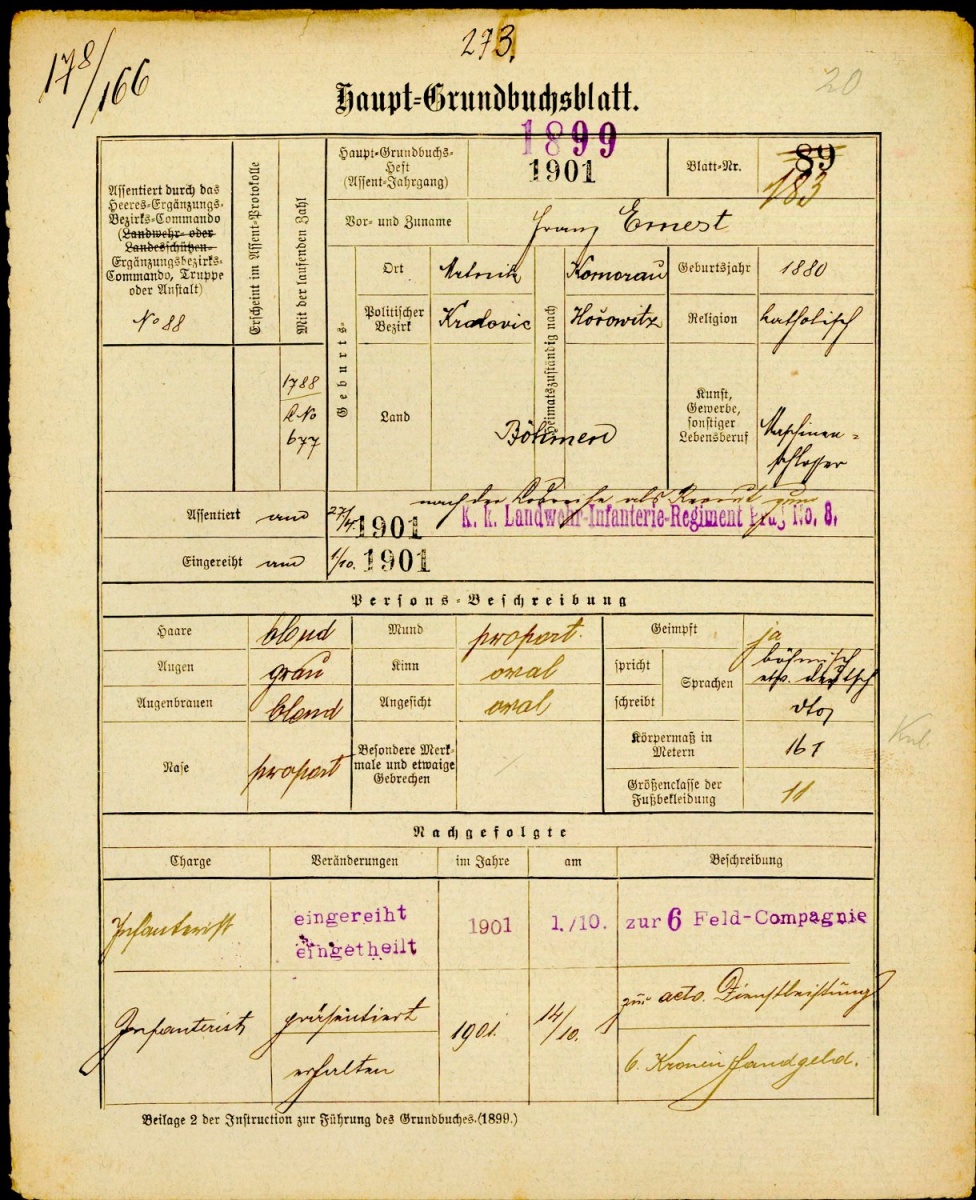 178/166
273.
20
Haupt-Grundbuchsblatt.
1899
Assentiert durch das
Heeres-Ergänzungs-
Bezirks-Commando
(Landwehr- oder
Landesschützen-
Ergänzungsbezirks-
Commando, Truppe
oder Anstalt)
No 88
Erscheint im Assent-Protokolle
Mit der laufenden Zahl
1788
No
677
Haupt-Grundbuchs-
Heft
(Assent-Jahrgang)
1901
Blatt-Nr.
89
183
Vor- und Zuname
Franz Ernest
Geburts-
Ort
Heimatszuständig nach
Komorau
Geburtsjahr
1880
Politischer
Bezirk
Kralovic
Hořowitz
Religion
katholisch
Land
Böhmen
Kunst,
Gewerbe,
sonstiger
Lebensberuf
Maschinen-
schlosser
nach der Losreihe als Rekrut zum
Assentiert am 27/4. 1901 K. k. Landwehr-Infanterie-Regiment Prag No. 8.
Eingereiht am 1/10. 1901
Persons-Beschreibung
Haare blond
Mund proport.
Geimpft ja
Augen grau
Kinn oval
spricht
Sprachen
böhmisch
etw. deutsch
Augenbrauen blond
Angesicht oval
schreibt
dto
Nase proport
Besondere Merk-
male und etwaige
Gebrechen
Körpermaß in
Metern
167
Größenclasse der
Fußbekleidung
11
Nachgefolgte
Charge Veränderungen im Jahre am Beschreibung
Infanterist
eingereiht
eingetheilt
1901 1./10. zur 6 Feld-Compagnie
Infanterist
präsentiert
1901. 14/10.
zur activ. Dienstleistung
erhalten
6. Kronen Handgeld.
Beilage 2 der Instruction zur Führung des Grundbuches.(1899.)